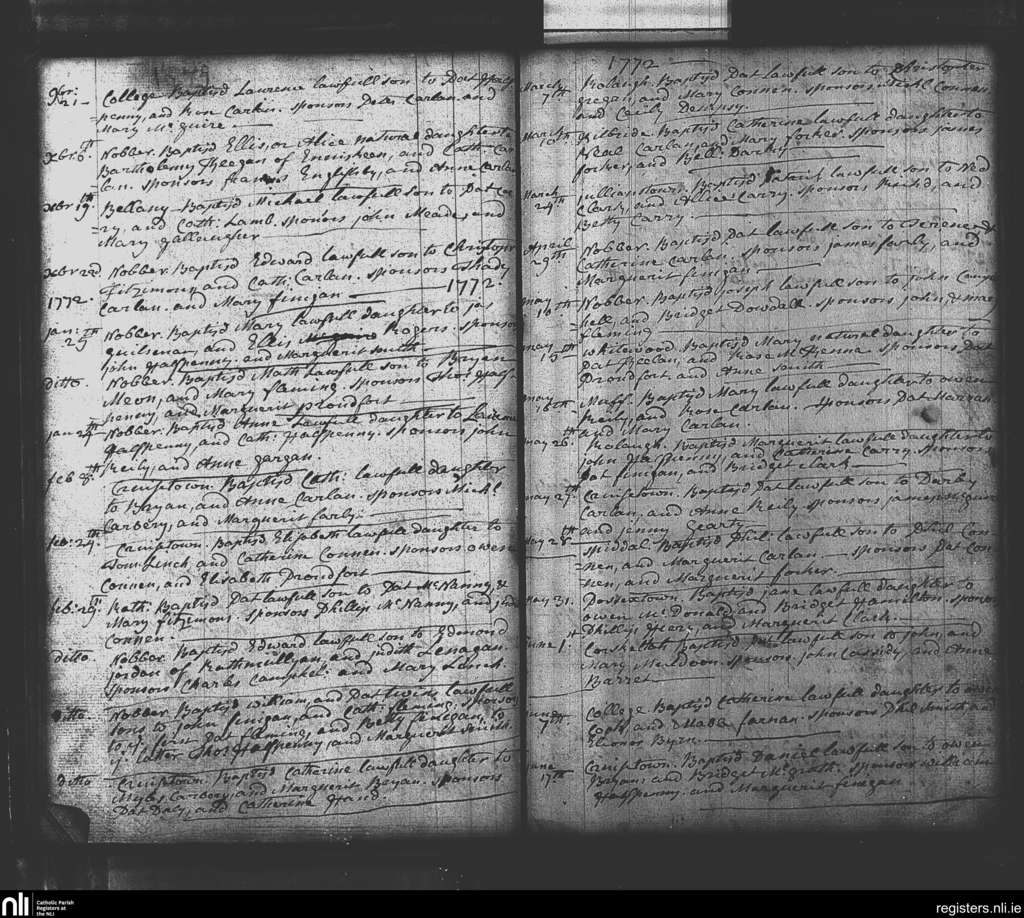 Xbr: 21 College Baptis'd Lawrence lawfull son to Pat Halfpenny, and Carlan. sponsors Peter Carlan and
Mary McGuire
Xbr: 6th Nobber. Baptis'd Ellis, or Alice natural daughter to
Bartholemy Keegan of Enniskeen, and Cath: Car
lan. sponsors Francis Inglisby, and Anne Carlan
Xbr 19th Bellany Baptis'd Michael lawfull son to Pat
and Cath: Lamb. sponsors John Meade, and
Mary
Xbr 22d Nobber. Baptis'd Edward lawfull son to Christopr
Fitzimons, and Cath: Carlan. sponsors Thady
Carlan. and Mary Finigan
1772. 1772.
Jan: 25th Nobber. Baptis'd Mary lawfull daughter to Jas
and Ellis Rogers. sponsors
John Halfpenny. and Marguerit Smith
ditto. Nobber. Baptis'd Math: Lawfull son to Bryan
Meon, and Mary Fleming. Sponsors Thos Half-
penny, and Marguerit Drondfort
Jan Nobber. Baptis'd Anne Lawfull daughter to Lawrence
Halfpenny, and Cath: Halfpenny. sponsors John
Reily, and Anne Gargan.
Feb 8th Cruiptown. Baptis'd Cath: lawfull daughter
to Bryan, and Anne Carlan. sponsors Michl
Carbery, and Marguerit Farly.
Feb: 24th Cruiptown. Baptis'd Elizabeth lawfull daughter to
Tom: Linch, and Catherine Connen. sponsors Owen
Connen, and Elisabeth Drondfort
Feb: 29th Rath: Baptis'd Pat lawfull son to Pat McNanny, &
Mary Fitzimons. sponsors Phillip McNanny, and
Connen.
ditto. Nobber Baptis'd Edward lawfull son to Edmond
Jordan of Rathmullyan, and Judith Lenagan.
Sponsors Charles Campbell and Mary Lynch.
ditto Nobber. Baptis'd William, and Pat twins lawfull
sons to John Finigan, and Cath: Fleming. sponsors
to ye for Pat Fleming, and Betty Finegan, to
ye latter Thos Halfpenny and Marguerit Smith.
ditto Cruiptown. Baptis'd Catherine lawfull daughter to
Myles Carbery, and Marguerit Bryan. sponsors
Pat Daly, and Catherine Hand.
1772
March 7th Ralaugh. Baptis'd Pat lawfull son to Christopher
Gregan, and Mary Connen. sponsors Michl Connan
and Cecily
March 10th Kilbride. Baptis'd Catherine lawfull daughter to
Neal Carlan, and Mary Forker. sponsors James
Forker, and Bell:
March 24th Julianstown. Baptis'd Patrick lawfull son to Ned
Clark, and Alice Carry. sponsors Rich'd, and
Betty Carry.
April 29th Nobber. Baptis'd Pat lawfull son to Terence, &
Catherine Carlan. sponsors James Farly, and
Marguerit Finigan
May 10th Nobber. Baptis'd Joseph lawfull son to John Camp-
bell, and Bridget Dowdall. sponsors John, & Mary
Fleming
May 15th Whitewood. Baptis'd Mary natural daughter to
Pat Phelan, and Rose McKenna. Sponsors Pat
Drondfort. and Anne Smith
May 16th Muff. Baptis'd Mary lawfull daughter to Owen
Reily, and Rose Carlan. Sponsors Pat
and Mary Carlan.
May 26. Ralaugh. Baptis'd Marguerit lawfull daughter to
John Halfpenny, and Catherine Carry. sponsors
Pat Finigan, and Bridget Clark
May 27. Cruisetown. Baptis'd Pat lawfull son to Darby
Carlan, and Anne Reily. sponsors James
and Jenny Gearty
May 28th Spiddal. Baptis'd Phil: lawfull son to Phil: Con-
nen, and Marguerit Carlan. sponsors Pat Con-
nen, and Marguerit Forker.
May 31. Baptis'd Jane lawfull daughter to
Owen McDonald, and Bridget Hamilton. sponsors
Phillip and Marguerit Clark.
June 1st Corshellah Baptis'd lawfull son to John, and
Mary Muldoon. sponsors John Cassidy, and Anne
Barret
June 7th College Baptis'd Catherine lawfull daughter to Owen
and Mable Farnan. sponsors Phil Smith and
Elionor Byrn
June 17th Cruiptown. Baptis'd Daniel lawfull son to Owen
and Bridget McGrath. sponsors William
Halfpenny. and Marguerit Finegan
nli Catholic Parish
Registers at
the NLI
registers.nli.ie